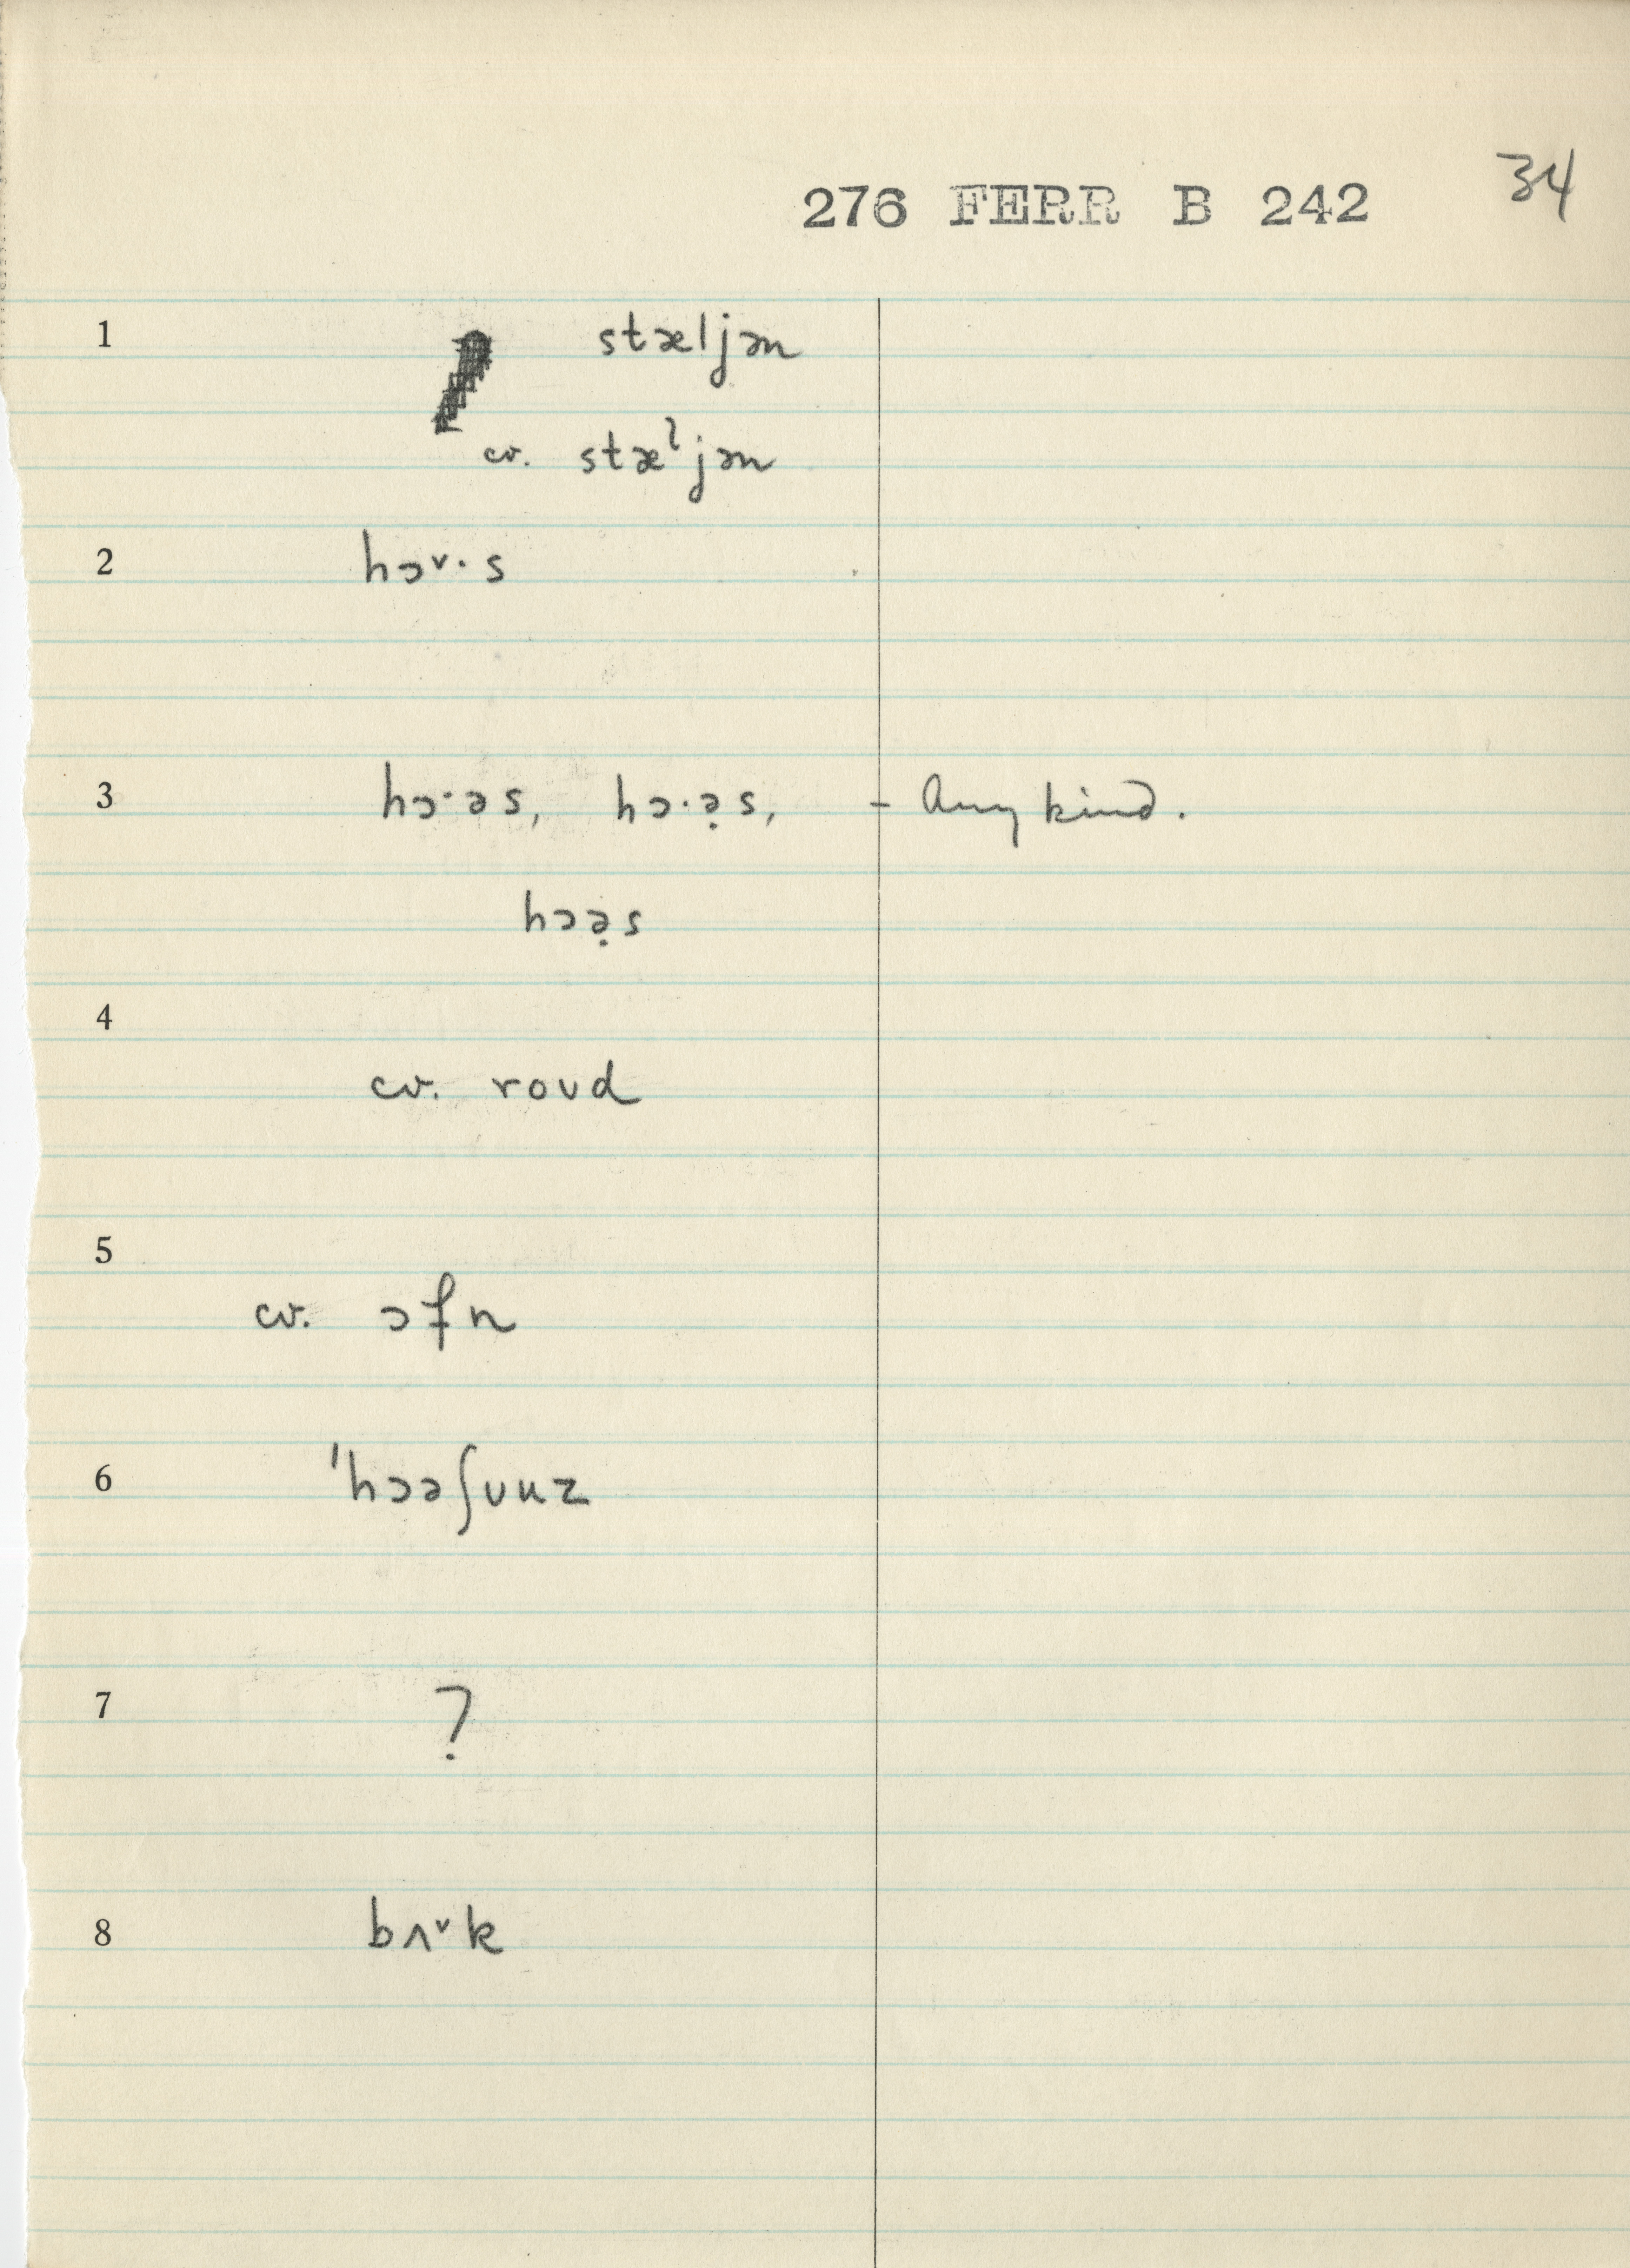 34
276 FERR B 242
1 stæljən
cv. stæˡjən
2 hɔᵛ·s
3 hɔ·əs, hɔ·ə̣s, - Any kind.
hɔə̣s
4
cv. roʊd
5
cv. ɔfn
6 ˈhɔəʃuuz
7 ?
8 bʌᵛk